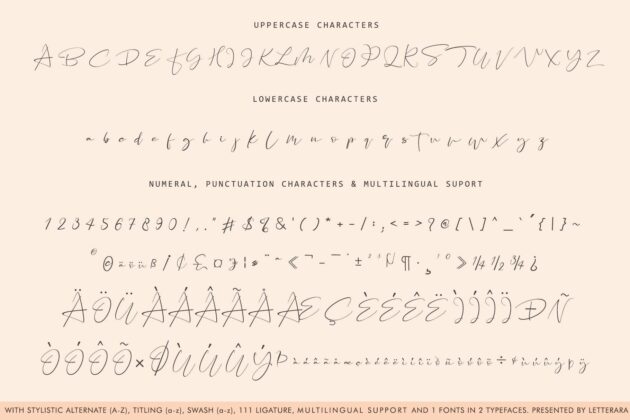 UPPERCASE CHARACTERS
A B C D E F G H I J K L M N O P Q R S T U V W X Y Z
LOWERCASE CHARACTERS
a b c d e f g h i j k l m n o p q r s t u v w x y z
NUMERAL, PUNCTUATION CHARACTERS & MULTILINGUAL SUPORT
1 2 3 4 5 6 7 8 9 0 ! , . " # $ % & ' ( ) * + - / : , < = > ? @ [ \ ] ^ _ ` ´ { | } ~
Ä Ö Ü À Á Â Ã Å Æ Ç È É Ê Ë Ì Í Î Ï Ð Ñ
Ò Ó Ô Õ × Ø Ù Ú Û Ý Þ
WITH STYLISTIC ALTERNATE (A-Z), TITLING (a-z), SWASH (a-z), 111 LIGATURE, MULTILINGUAL SUPPORT AND 1 FONTS IN 2 TYPEFACES. PRESENTED BY LETTERARA